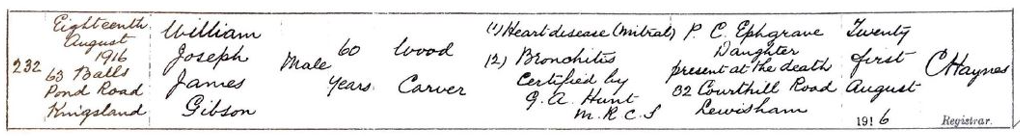 232
Eighteenth
August
1916
63 Balls
Pond Road
Kingsland
William
Joseph
James
Gibson
Male
60
Years
Wood
Carver
(1) Heart disease (Mitral)
(2) Bronchitis
Certified by
G. A. Hunt
M.R.C.S
P. C. Ephgrave
Daughter
present at the death
32 Courthill Road
Lewisham
Twenty
first
August
1916
C Haynes
Registrar.